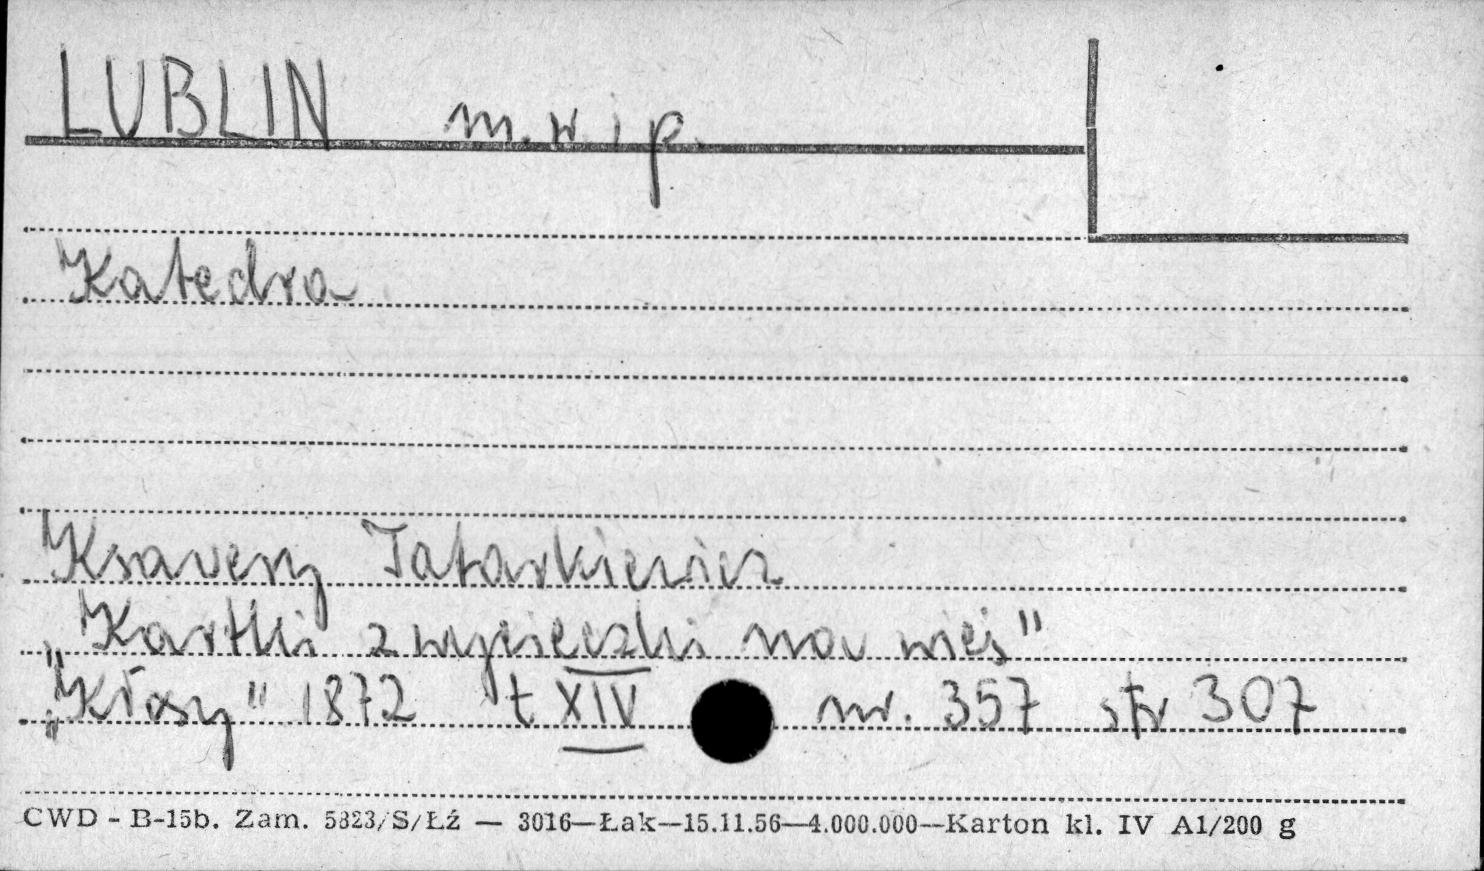 LUBLIN m. w. i p.
Katedra
Ksawery Tatarkiewicz
„Kartki z wycieczki na wieś"
„Kłosy" 1872 t XIV nr. 357 str 307
CWD - B-15b. Zam. 5823/S/Łź — 3016—Łak—15.11.56—4.000.000—Karton kl. IV A1/200 g